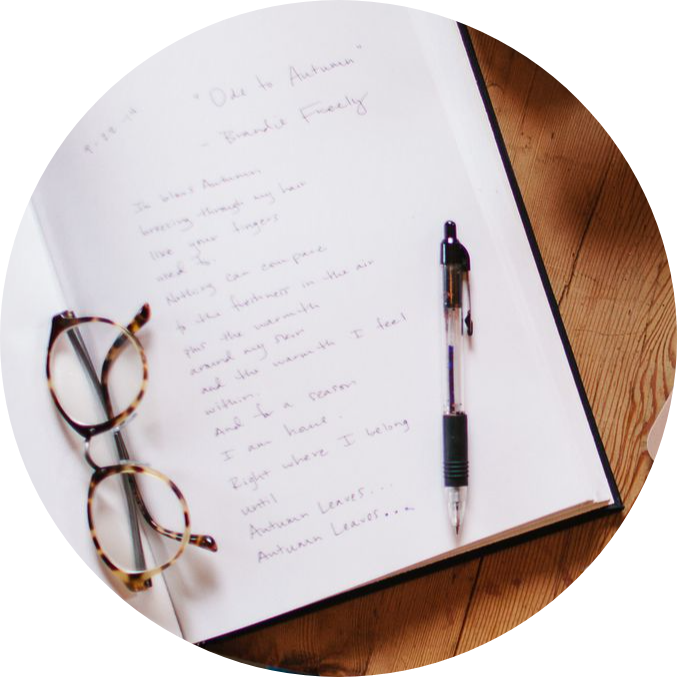 "Ode to Autumn"
- Brandie Freely
Autumn
breezing through my hair
like your fingers
used to.
Nothing can compare
to the freshness in the air
plus the warmth
around my skin
and the warmth I feel
within.
And for a season
I am home.
Right where I belong
until
Autumn Leaves...
Autumn Leaves...